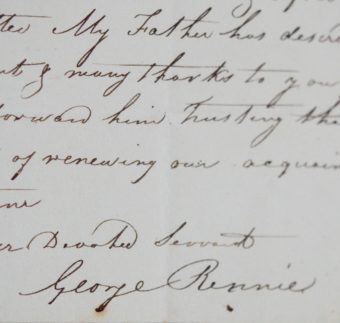 My Father has desir
& many thanks to you
forward him trusting the
of renewing our acquain
er Devoted Servant
George Rennie